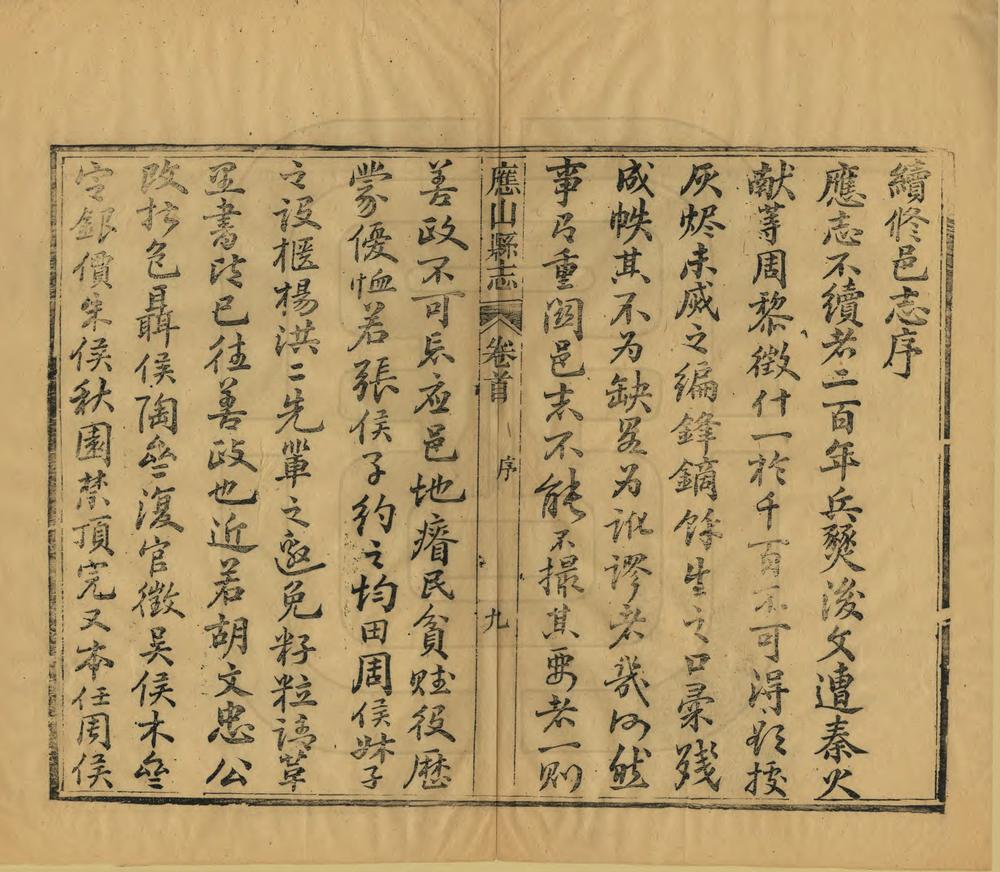 續修邑志序
應志不續者二百年兵燹後文遭秦火
献等周黎徵什一於千百不可得祇援
灰烬未烕之編鋒鏑餘生之口彙殘
成帙其不为缺畧为訛謬者幾何然
事有重闗邑志不能不撮其要者一则
應山縣志 卷首 序 九
善政不可忘应邑地瘠民貧赋役歷
蒙優恤若張侯子約之均田周侯
之設櫃楊洪二先輩之免籽粒請革
里書皆已往善政也近若胡文忠公
改折色聶侯陶叄復官徵吴侯木叄
定銀價朱侯秋園禁頂兑又本任周侯